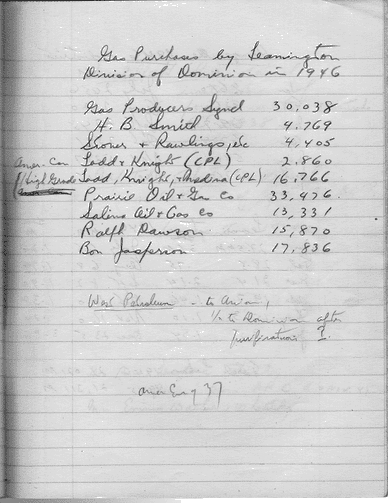 Gas Purchases by Leamington
Division of Dominion in 1946
Gas Producers Synd 30,038
H. B. Smith 4,769
Stoner & Rawlings, etc 4,405
Amer. Can Ladd & Knight (CPL) 2,860
High Grade Ladd, Knight, & Medina (CPL) 16,766
Prairie Oil & Gas Co 33,476
Salina Oil & Gas Co 13,331
Ralph Dawson 15,870
Bon Jasperson 17,836
West Petroleum - to Union,
1/2 to Dominion after
Purification ?